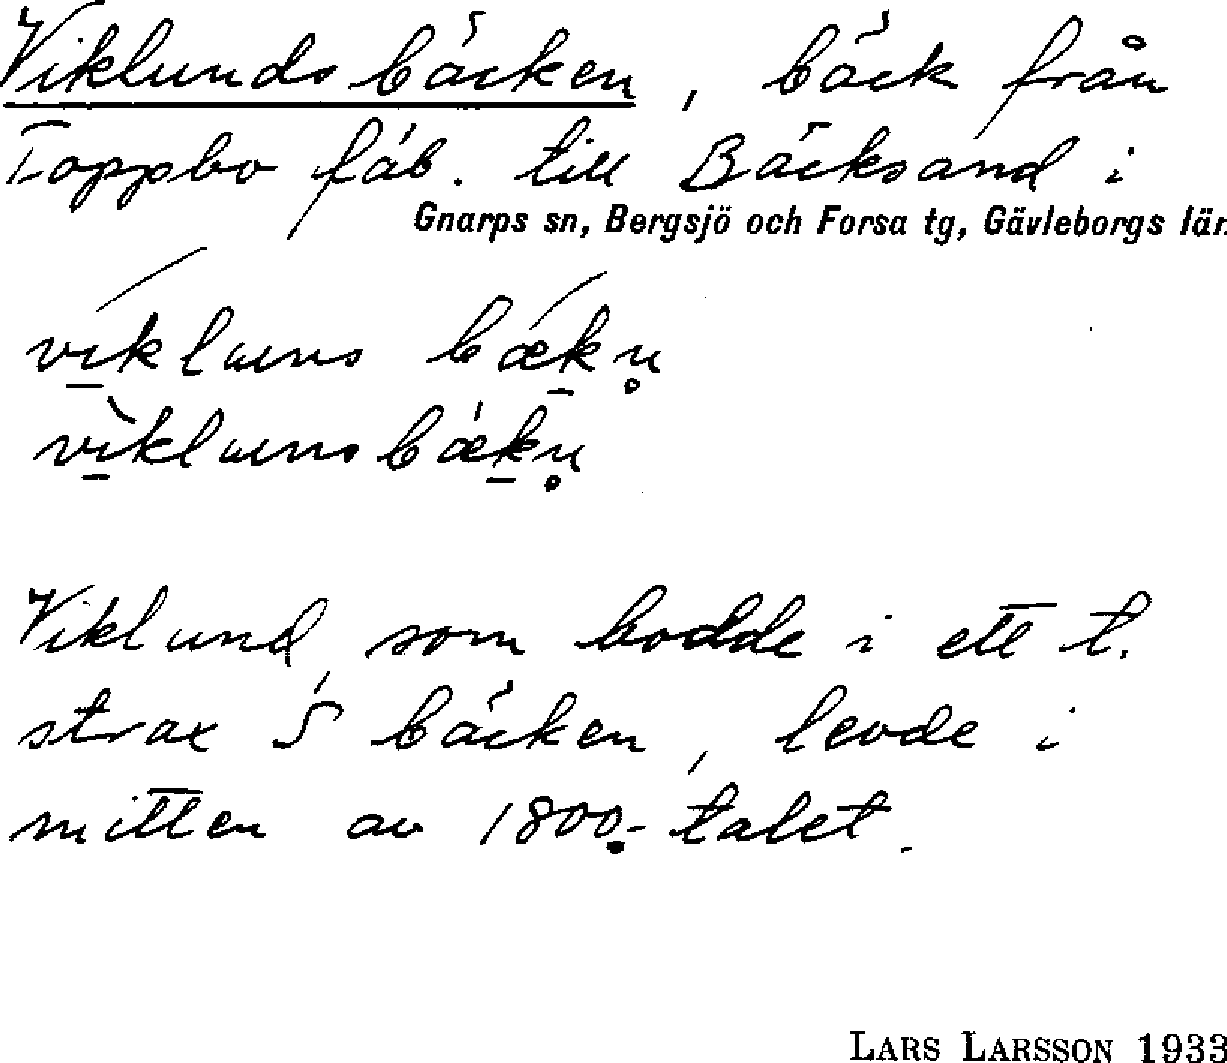 Viklundsbäcken, bäck från
Toppbo fäb. till Bäcksand i
Gnarps sn, Bergsjö och Forsa tg, Gävleborgs län
vikluns bækn̥
viklunsbækn̥
Viklund, som bodde i ett t.
strax S bäcken, levde i
mitten av 1800-talet.
LARS LARSSON 1933